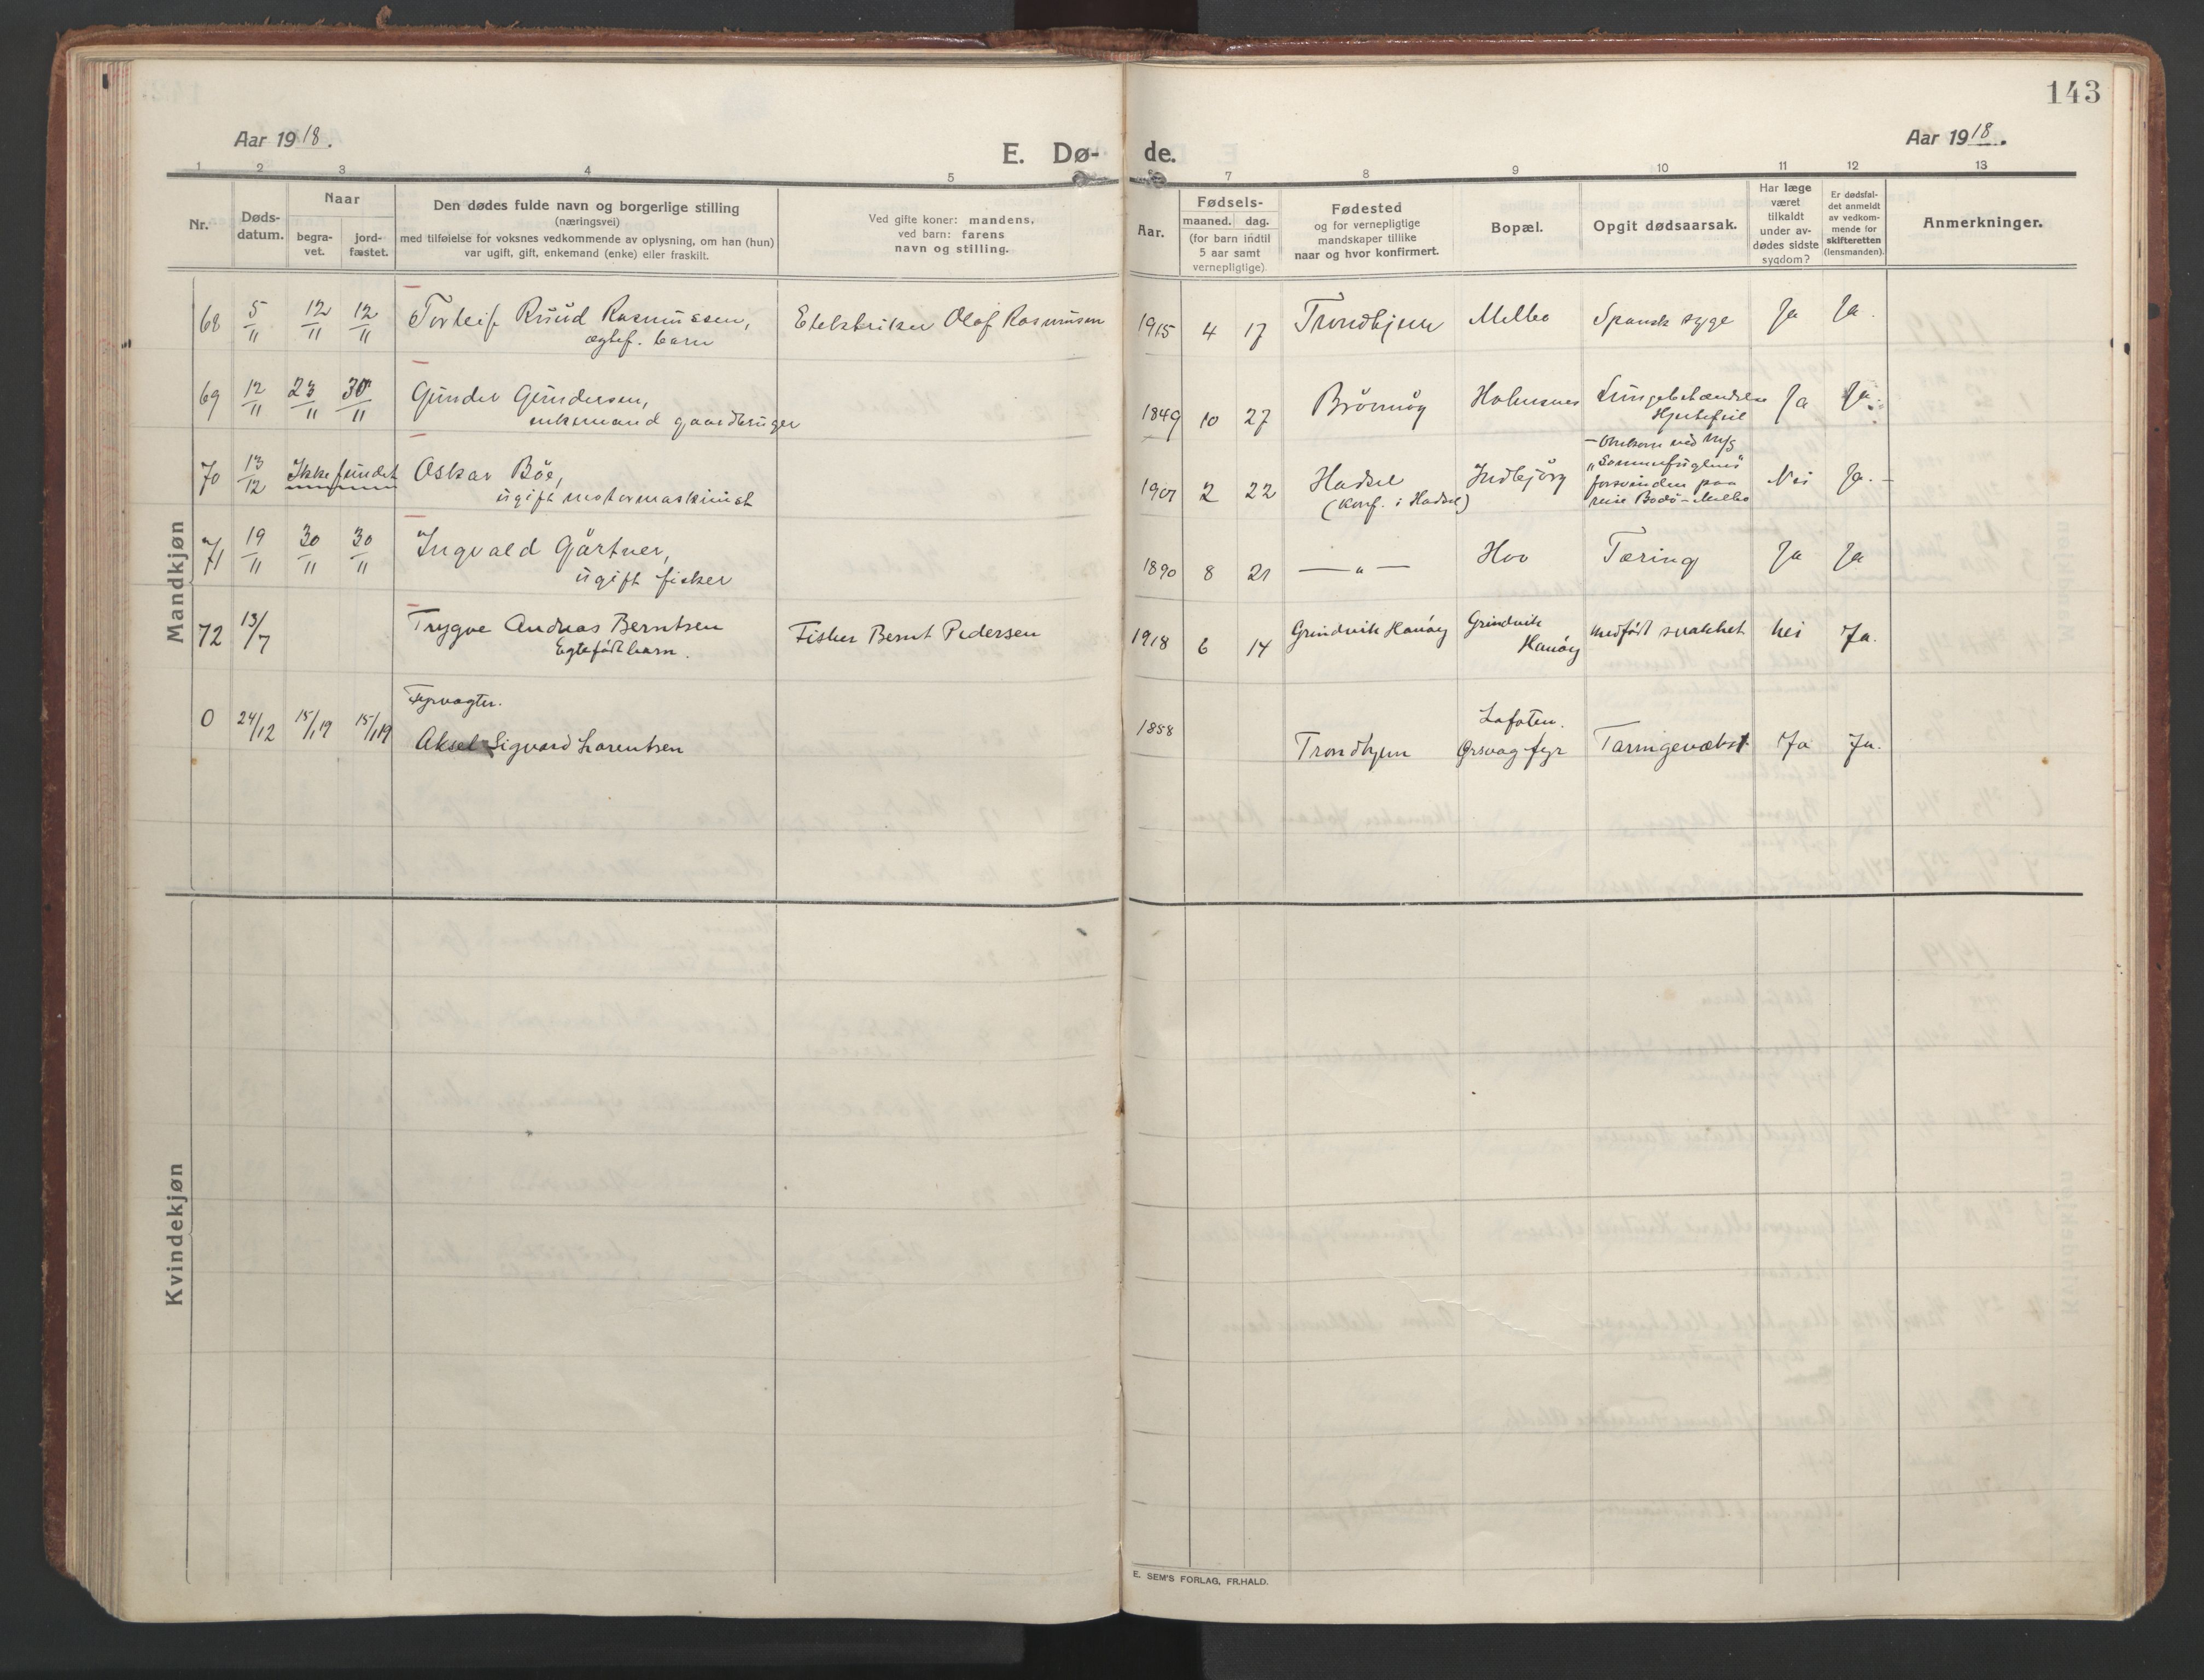 143
Aar 1918.
E. Dø-
de.
Aar 1918.
1 2 3 4 5
7 8 9 10 11 12 13
Nr.
Døds-
datum.
Naar
begra-
vet.
jord-
fæstet.
Den dødes fulde navn og borgerlige stilling
(næringsvei)
med tilføielse for voksnes vedkommende av oplysning, om han (hun)
var ugift, gift, enkemand (enke) eller fraskilt.
Ved gifte koner: mandens,
ved barn: farens
navn og stilling.
Aar.
Fødsels-
maaned. dag.
(for barn indtil
5 aar samt
vernepligtige)
Fødested
og for vernepligtige
mandskaper tillike
naar og hvor konfirmert.
Bopæl.
Opgit dødsaarsak.
Har læge
været
tilkaldt
under av-
dødes sidste
sygdom?
Er dødsfal-
det anmeldt
av vedkom-
mende for
skifteretten
(lensmanden).
Anmerkninger.
Mandkjøn
68 5/11 12/11 12/11 Torleif Ruud Rasmussen, Elektriker Olaf Rasmussen 1915 4 17 Trondhjem Melbo Spansk syge Ja Ja.
ægtef. barn
69 12/11 23/11 30/11 Gunder Gundersen, 1849 10 27 Brönnöy Holmsnes Lungebetændelse Ja Ja.
enkemand gaardbruger
Hjertefeil
70 13/12 Ikke fundet Oskar Böe, 1901 2 22 Hadsel Indbjörg
ugift motormaskinist
(konf. i Hadsel)
– Omkom ved m/s
"Sommerfuglens"
forsvinden paa
reise Bodö – Melbo
Nei Ja. –
71 19/11 30/11 30/11 Ingvald Gärtner, 1890 8 21 — " — Hov Tæring Ja Ja
ugift fisker
72 13/7 Trygve Andreas Berntsen Fisker Bernt Pedersen 1918 6 14 Grindvik Hanöy Grindvik
Hanöy medfödt svakhet nei Ja.
Egtefödt barn.
Fyrvogter.
0 24/12 15/1 19 15/1 19 Aksel Sigvard Lorentsen 1858 Trondhjem Lofoten.
Ørsvag fyr Tæringsvækst Ja Ja.
Kvindekjøn
E. SEM'S FORLAG, FR.HALD.